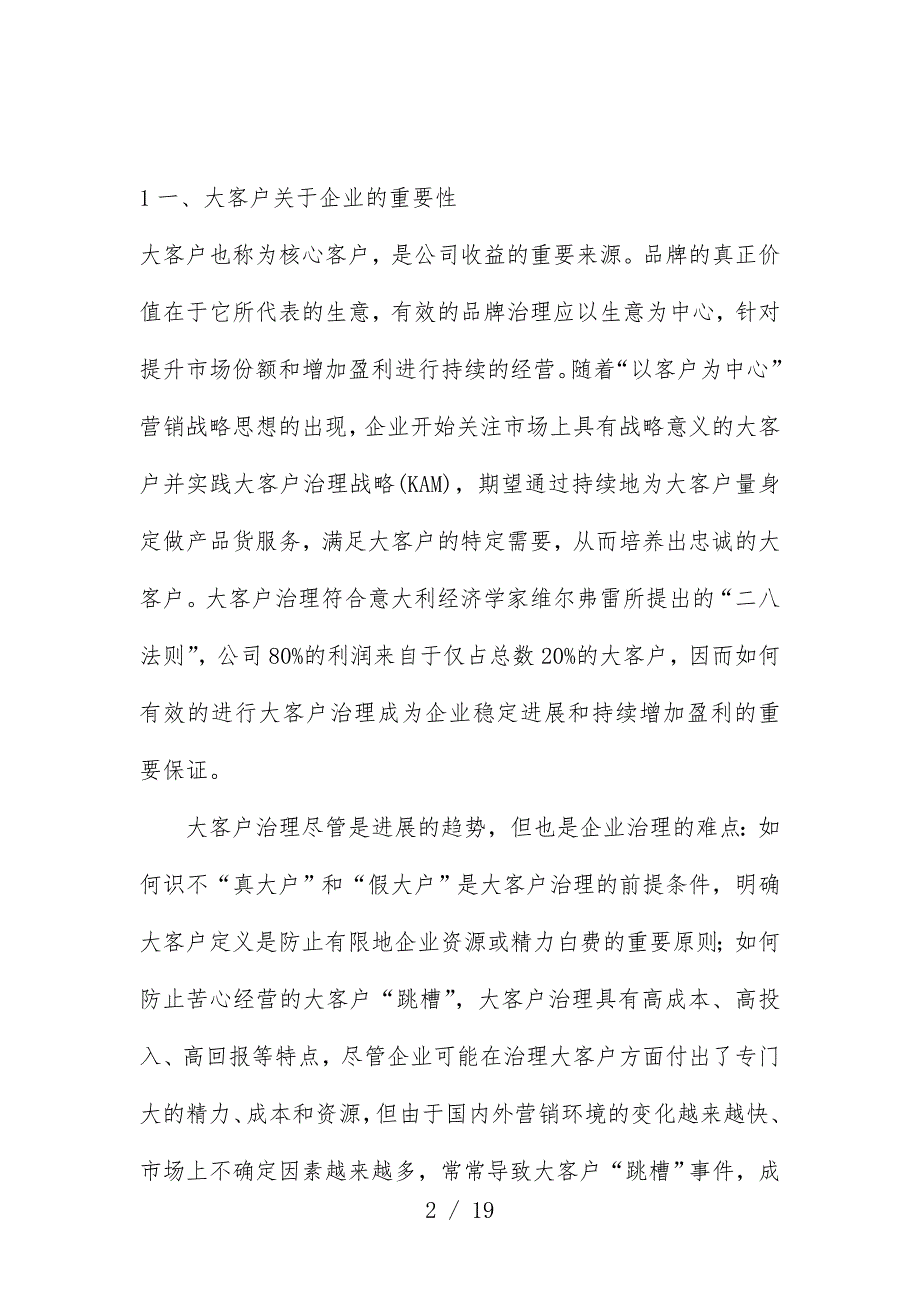 1 一、大客户关于企业的重要性
大客户也称为核心客户，是公司收益的重要来源。品牌的真正价
值在于它所代表的生意，有效的品牌治理应以生意为中心，针对
提升市场份额和增加盈利进行持续的经营。随着“以客户为中心”
营销战略思想的出现，企业开始关注市场上具有战略意义的大客
户并实践大客户治理战略(KAM)，期望通过持续地为大客户量身
定做产品货服务，满足大客户的特定需要，从而培养出忠诚的大
客户。大客户治理符合意大利经济学家维尔弗雷所提出的“二八
法则”，公司80%的利润来自于仅占总数20%的大客户，因而如何
有效的进行大客户治理成为企业稳定进展和持续增加盈利的重
要保证。
大客户治理尽管是进展的趋势，但也是企业治理的难点：如
何识不“真大户”和“假大户”是大客户治理的前提条件，明确
大客户定义是防止有限地企业资源或精力白费的重要原则；如何
防止苦心经营的大客户“跳槽”，大客户治理具有高成本、高投
入、高回报等特点，尽管企业可能在治理大客户方面付出了专门
大的精力、成本和资源，但由于国内外营销环境的变化越来越快、
市场上不确定因素越来越多，常常导致大客户“跳槽”事件，成
2 / 19